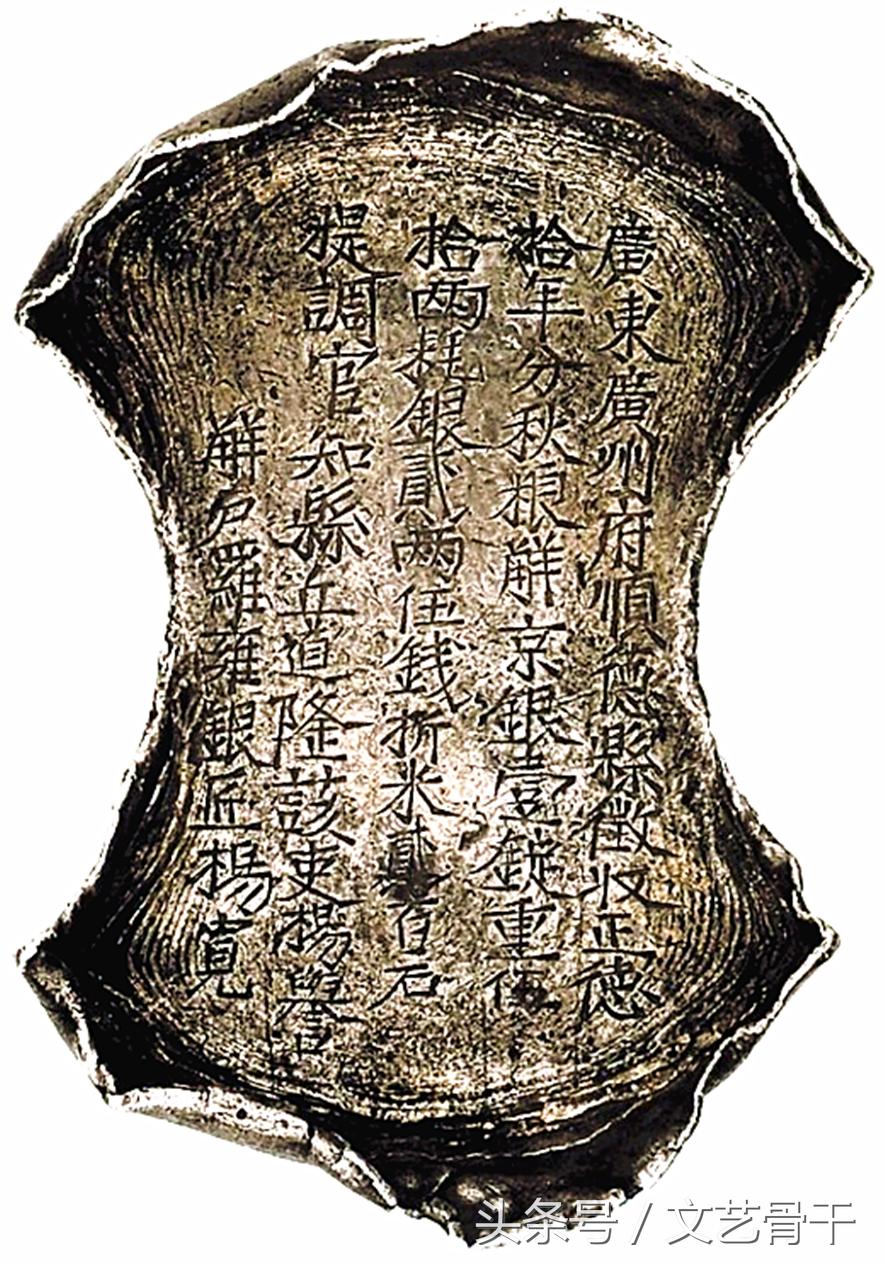 廣東廣州府順德縣徵收正德
拾年分秋粮解京銀壹錠重伍
拾兩耗銀貳兩伍錢折米貳百石
提調官知縣丘道隆該吏楊譽
解戶羅雍銀匠楊寛
头条号 / 文艺骨干